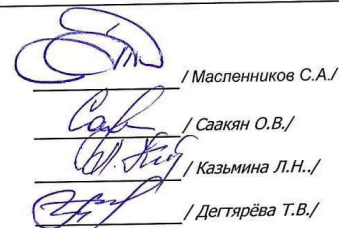 / Масленников С.А./
/ Саакян О.В./
/ Казьмина Л.Н../
/ Дегтярёва Т.В./